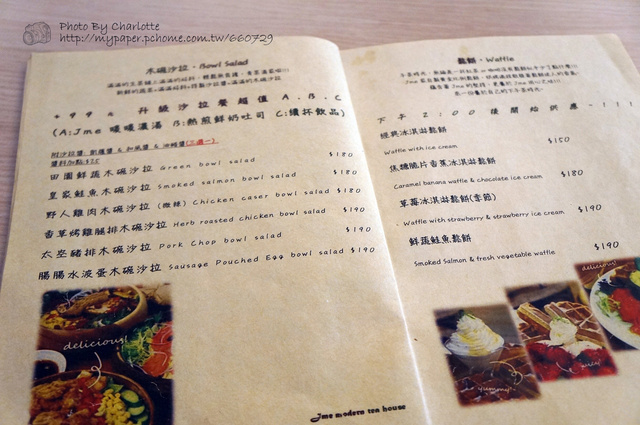 Photo By Charlotte
http://mypaper.pchome.com.tw/660729
木碗沙拉·Bowl Salad
+99元 升級沙拉餐超值 A.B.C
(A:Jme 暖暖濃湯 B:熱煎鮮奶吐司 C:續杯飲品)
醬料加點$25
田園鮮蔬木碗沙拉 Green bowl salad $180
皇家鮭魚木碗沙拉 Smoked salmon bowl salad $180
野人雞肉木碗沙拉 (微辣) Chicken caser bowl salad $180
香草烤雞腿排木碗沙拉 Herb roasted chicken bowl salad $190
太空豬排木碗沙拉 Pork Chop bowl salad $190
腸腸水波蛋木碗沙拉 Sausage Pouched Egg bowl salad $190
delicious!
Jme modern tea house
鬆餅·Waffle
下午2:00後開始供應
經典冰淇淋鬆餅
Waffle with ice cream $150
焦糖脆片香蕉冰淇淋鬆餅
Caramel banana waffle & chocolate ice cream $180
草莓冰淇淋鬆餅(季節)
Waffle with strawberry & strawberry ice cream $190
鮮蔬鮭魚鬆餅
Smoked Salmon & fresh vegetable waffle $190
delicious!
yummy!